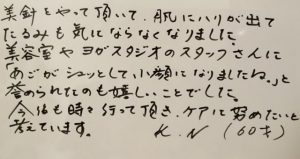 美針をやって頂いて、肌にハリが出て
たるみも気にならなくなりました。
美容室やヨガスタジオのスタッフさんに
「あごがシュッとして、小顔になりましたね。」と
誉められたのも嬉しいことでした。
今後も時々行って頂き、ケアに努めたいと
考えています。 K.N (60才)